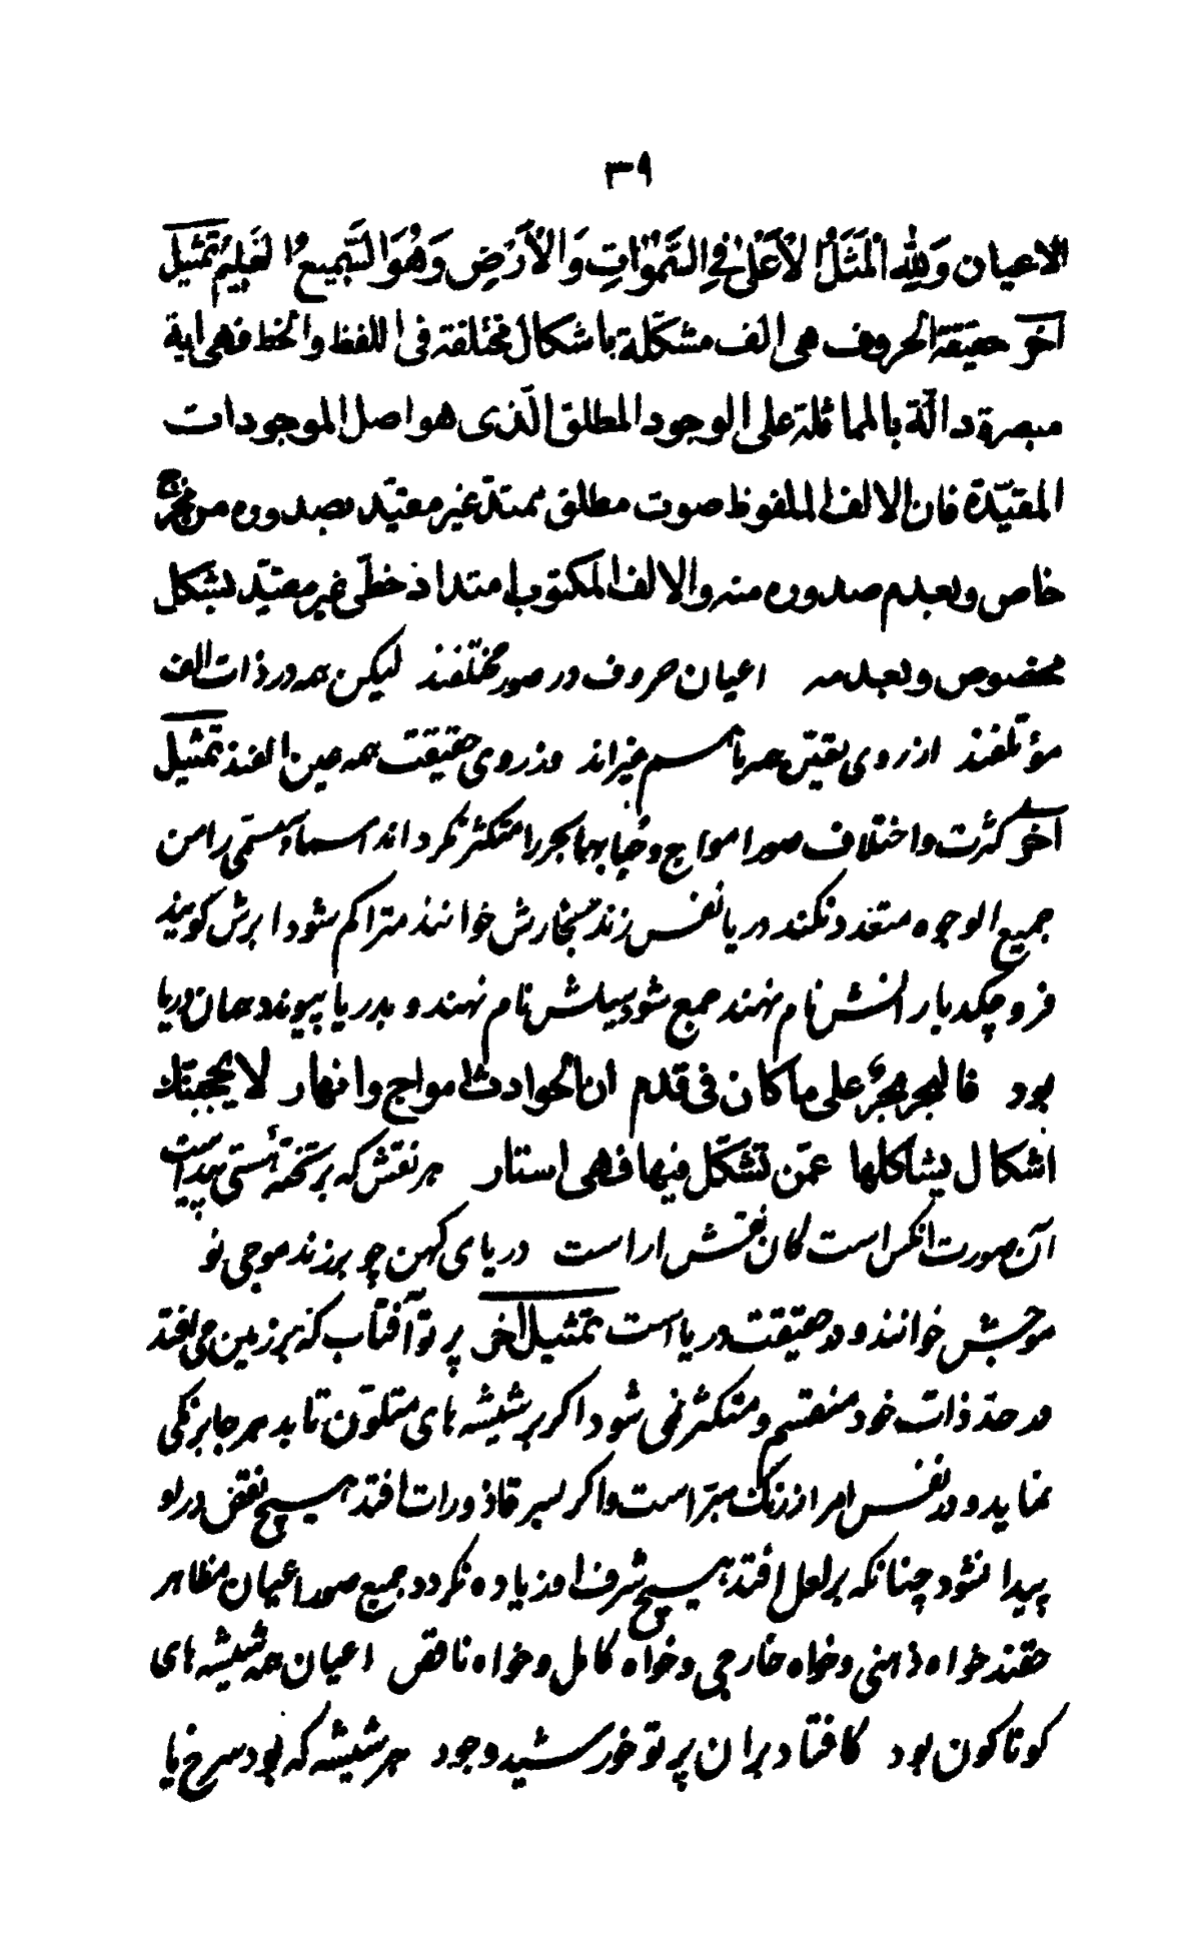 ٣٩
الاعیان وَلِلّٰهِ الْمَثَلُ الْاَعْلٰى فِى السَّمٰوَاتِ وَالْاَرْضِ وَهُوَ السَّمِيعُ الْعَلِيمُ تمثیل
آخر حقیقة الحروف هی الف مشکّلة باشکال مختلفة فی اللفظ والخط فهی ایة
مبصرة دالّة بالمماثلة علی الوجود المطلق الّذی هو اصل الموجودات
المقیّدة فان الالف الملفوظ صوت مطلق ممتدّ غیر مقیّد بصدوره من مخرج
خاص وبعدم صدوره منه والالف المکتوب امتداد خطّی غیر مقیّد بشکل
مخصوص وبعدمه اعیان حروف در صور مختلفند لیکن همه در ذات الف
مؤتلفند از روی تعیّن همه با هم غیراند وز روی حقیقت همه عین الفند تمثیل
آخر کثرت واختلاف صور امواج وحبابها بحر را متکثر نکرداند اسماء مسمّی را من
جمیع الوجوه متعدد نکند دریا نفس زند بخارش خوانند متراکم شود ابرش کویند
فرو چکد بارانش نام نهند جمع شود سیلش نام نهند و بدریا پیوندد همان دریا
بود فالبحر بحرٌ علی ما کان فی قدم ان الحوادث امواج وانهار لا یحجبنّك
اشکال یشاکلها عمّن تشکّل فیها فهی استار هر نقش که بر تختهٔ هستی پیداست
آن صورت انکس است کان نقش اراست دریای کهن چو برزند موجی نو
موجش خوانند و در حقیقت دریا است تمثیل اخر پرتو آفتاب که بر زمین می افتد
در حد ذات خود منقسم و متکثر نمی شود اکر بر شیشه های متلوّن تابد هر جا برنکی
نماید و در نفس امر از رنک مبرّاست واکر بر قاذورات افتد هیچ نقص در او
پیدا نشود چنانکه بر لعل افتد هیچ شرف او زیاده نکردد جمیع صور اعیان مظاهر
حقند خواه ذهنی وخواه خارجی وخواه کامل وخواه ناقص اعیان همه شیشه های
کوناکون بود کافتاد بران پرتو خورشید وجود هر شیشه که بود سرخ یا